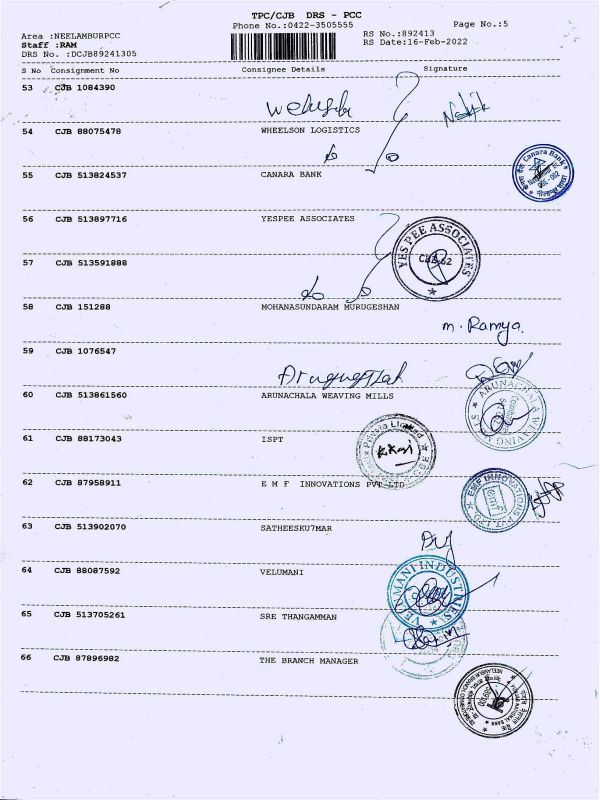 TPC/CJB DRS - PCC
Phone No.:0422-3505555
Page No.:5
Area :NEELAMBURPCC
Staff :RAM
DRS No. :DCJB89241305
RS No.:892413
RS Date:16-Feb-2022
S No Consignment No Consignee Details Signature
53 CJB 1084390
54 CJB 88075478 WHEELSON LOGISTICS
55 CJB 513824537 CANARA BANK
Canara Bank
56 CJB 513897716 YESPEE ASSOCIATES
YES PEE ASSOCIATES
57 CJB 513591888
58 CJB 151288 MOHANASUNDARAM MURUGESHAN
m. Ramya
59 CJB 1076547
60 CJB 513861560 ARUNACHALA WEAVING MILLS
61 CJB 88173043 ISPT
Private Limited
62 CJB 87958911 E M F INNOVATIONS PVT LTD
EMF INNOVATIONS PVT LTD
63 CJB 513902070 SATHEESKU7MAR
64 CJB 88087592 VELUMANI
VELUMANI INDUSTRIES
65 CJB 513705261 SRE THANGAMMAN
66 CJB 87896982 THE BRANCH MANAGER